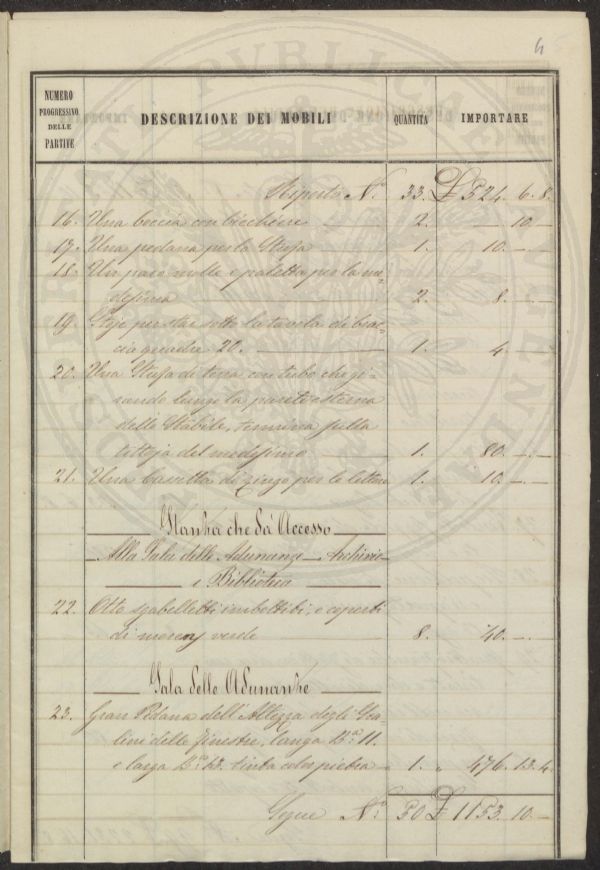 4 5
NUMERO PROGRESSIVO DELLE PARTITE
DESCRIZIONE DEI MOBILI
QUANTITÀ
IMPORTARE
Riporto N.° 33. £ 524. 6. 8.
16. Una boccia con bicchiere 2. " — 10. —
17. Una pedana per la Stufa 1. " 10. — . —
18. Un paro molle e paletta per la me-
desima 2. " 8. — . —
19. Stoje per stare sotto la tavola di brac-
cia quadre 20. 1. " 4. — . —
20. Una Stufa di terra con tubo che gi-
rando lungo la parete esterna
dello Stabile, termina sulla
tettoja del medesimo 1. " 80. — . —
21. Una Cassetta di zingo per le lettere 1. " 10. — . —
Stanza che dà Accesso
Alla Sala delle Adunanze Archivio
e Biblioteca
22. Otto sgabelletti imbottiti, e coperti
di verde 8. " 40. — . —
Sala delle Adunanze
23. Gran Pedana dell'Altezza degli Sca-
lini delle finestre, lunga B.a 11.
e larga B.a tinta color pietra 1. " 476. 13. 4.
Segue N.° 50 £ 1153. 10. —
SOCIETATIS PUBLICAE